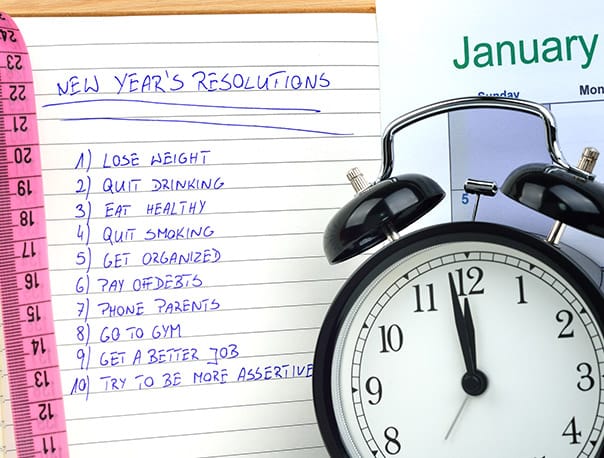 NEW YEAR'S RESOLUTIONS
1) LOSE WEIGHT
2) QUIT DRINKING
3) EAT HEALTHY
4) QUIT SMOKING
5) GET ORGANIZED
6) PAY OF DEBTS
7) PHONE PARENTS
8) GO TO GYM
9) GET A BETTER JOB
10) TRY TO BE MORE ASSERTIVE
January
Sunday Mon
5
11 12 1
10 2
9 3
8 4
24
23
22
21
20
19
18
17
16
15
14
13
12
11